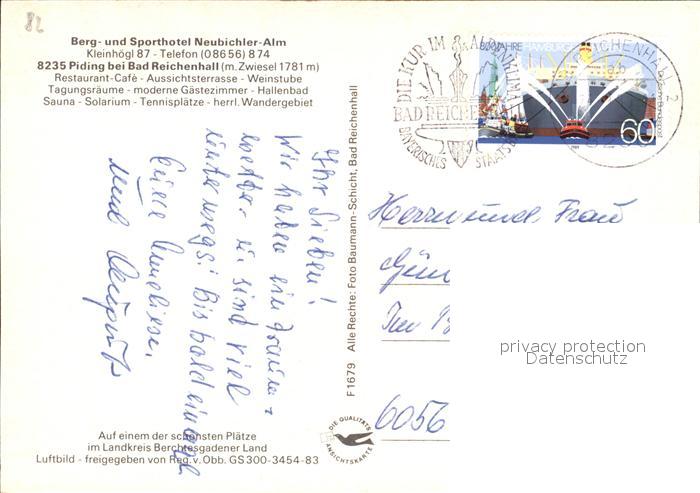 82
Berg- und Sporthotel Neubichler-Alm
Kleinhögl 87 - Telefon (0 86 56) 8 74
8235 Piding bei Bad Reichenhall (m. Zwiesel 1781 m)
Restaurant-Cafè - Aussichtsterrasse - Weinstube
Tagungsräume - moderne Gästezimmer - Hallenbad
Sauna - Solarium - Tennisplätze - herrl. Wandergebiet
Ihr Lieben!
Wir haben ein Traum-
wetter u. sind viel
unterwegs! Bis bald einmal
Eure Anneliese.
und
Auf einem der schönsten Plätze
im Landkreis Berchtesgadener Land
Luftbild - freigegeben von Reg. v. Obb. GS 300-3454-83
F 1679 Alle Rechte: Foto Baumann-Schicht, Bad Reichenhall
DIE QUALITÄTS
ANSICHTSKARTE
DIE KUR IM ALPENKLIMA
BAD REICHE
BAYERISCHES STAATSB
800 JAHRE HAMBURGER
60
REICHENHALL
2
Herrn und Frau
Gün
Im
6056
privacy protection
Datenschutz